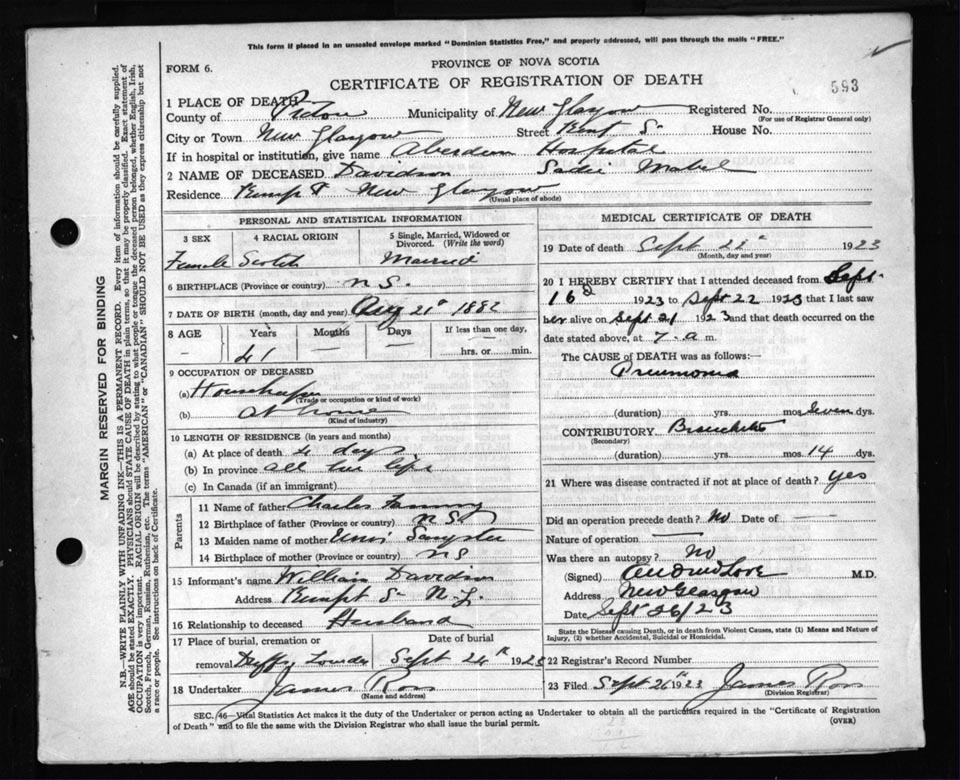 This form if placed in an unsealed envelope marked "Dominion Statistics Free," and properly addressed, will pass through the mails "FREE."
FORM 6.
PROVINCE OF NOVA SCOTIA
CERTIFICATE OF REGISTRATION OF DEATH
593
1 PLACE OF DEATH
County of Pictou Municipality of New Glasgow Registered No.
(For use of Registrar General only)
City or Town New Glasgow Street House No.
If in hospital or institution, give name Aberdeen Hospital
2 NAME OF DECEASED Davidson Sadie Mabel
Residence New Glasgow
(Usual place of abode)
PERSONAL AND STATISTICAL INFORMATION
3 SEX 4 RACIAL ORIGIN 5 Single, Married, Widowed or Divorced. (Write the word)
Female Scotch Married
6 BIRTHPLACE (Province or country) N S.
7 DATE OF BIRTH (month, day and year) Aug 21st 1882
8 AGE Years Months Days If less than one day,
41 hrs. or min.
9 OCCUPATION OF DECEASED
(a) Housekeeper
(Trade or occupation or kind of work)
(b) at home
(Kind of industry)
10 LENGTH OF RESIDENCE (in years and months)
(a) At place of death 4 days
(b) In province all her life
(c) In Canada (if an immigrant)
Parents
11 Name of father Charles
12 Birthplace of father (Province or country) N S.
13 Maiden name of mother
14 Birthplace of mother (Province or country) N S
15 Informant's name William Davidson
Address
16 Relationship to deceased Husband
17 Place of burial, cremation or removal Date of burial
Sept 24th 1923
18 Undertaker James Ross
(Name and address)
MEDICAL CERTIFICATE OF DEATH
19 Date of death Sept 1923
(Month, day and year)
20 I HEREBY CERTIFY that I attended deceased from Sept
16 1923 to Sept 22 1923 that I last saw
her alive on Sept 21 1923 and that death occurred on the
date stated above, at 7 a m.
The CAUSE OF DEATH was as follows:
Pneumonia
(duration) yrs. mos. Seven dys.
CONTRIBUTORY Bronchitis
(Secondary)
(duration) yrs. mos. 14 dys.
21 Where was disease contracted if not at place of death? yes
Did an operation precede death? No Date of
Nature of operation
Was there an autopsy? No
(Signed) M.D.
Address New Glasgow
Date Sept 26/23
State the Disease causing Death, or in death from Violent Causes, state (1) Means and Nature of Injury, (2) whether Accidental, Suicidal or Homicidal.
22 Registrar's Record Number
23 Filed Sept 26th 1923 James Ross
(Division Registrar)
SEC. 46—Vital Statistics Act makes it the duty of the Undertaker or person acting as Undertaker to obtain all the particulars required in the "Certificate of Registration
of Death" and to file the same with the Division Registrar who shall issue the burial permit.
(OVER)
MARGIN RESERVED FOR BINDING
N.B.—WRITE PLAINLY WITH UNFADING INK—THIS IS A PERMANENT RECORD. Every item of information should be carefully supplied.
AGE should be stated EXACTLY. PHYSICIANS should STATE CAUSE OF DEATH in plain terms, so that it may be properly classified. Exact statement of
OCCUPATION is very important. RACIAL ORIGIN will be described by stating to what people or tongue the deceased person belonged, whether English, Irish,
Scotch, French, German, Russian, Ruthenian, etc. The terms "AMERICAN" or "CANADIAN" SHOULD NOT BE USED as they express citizenship but not
a race or people. See instructions on back of Certificate.